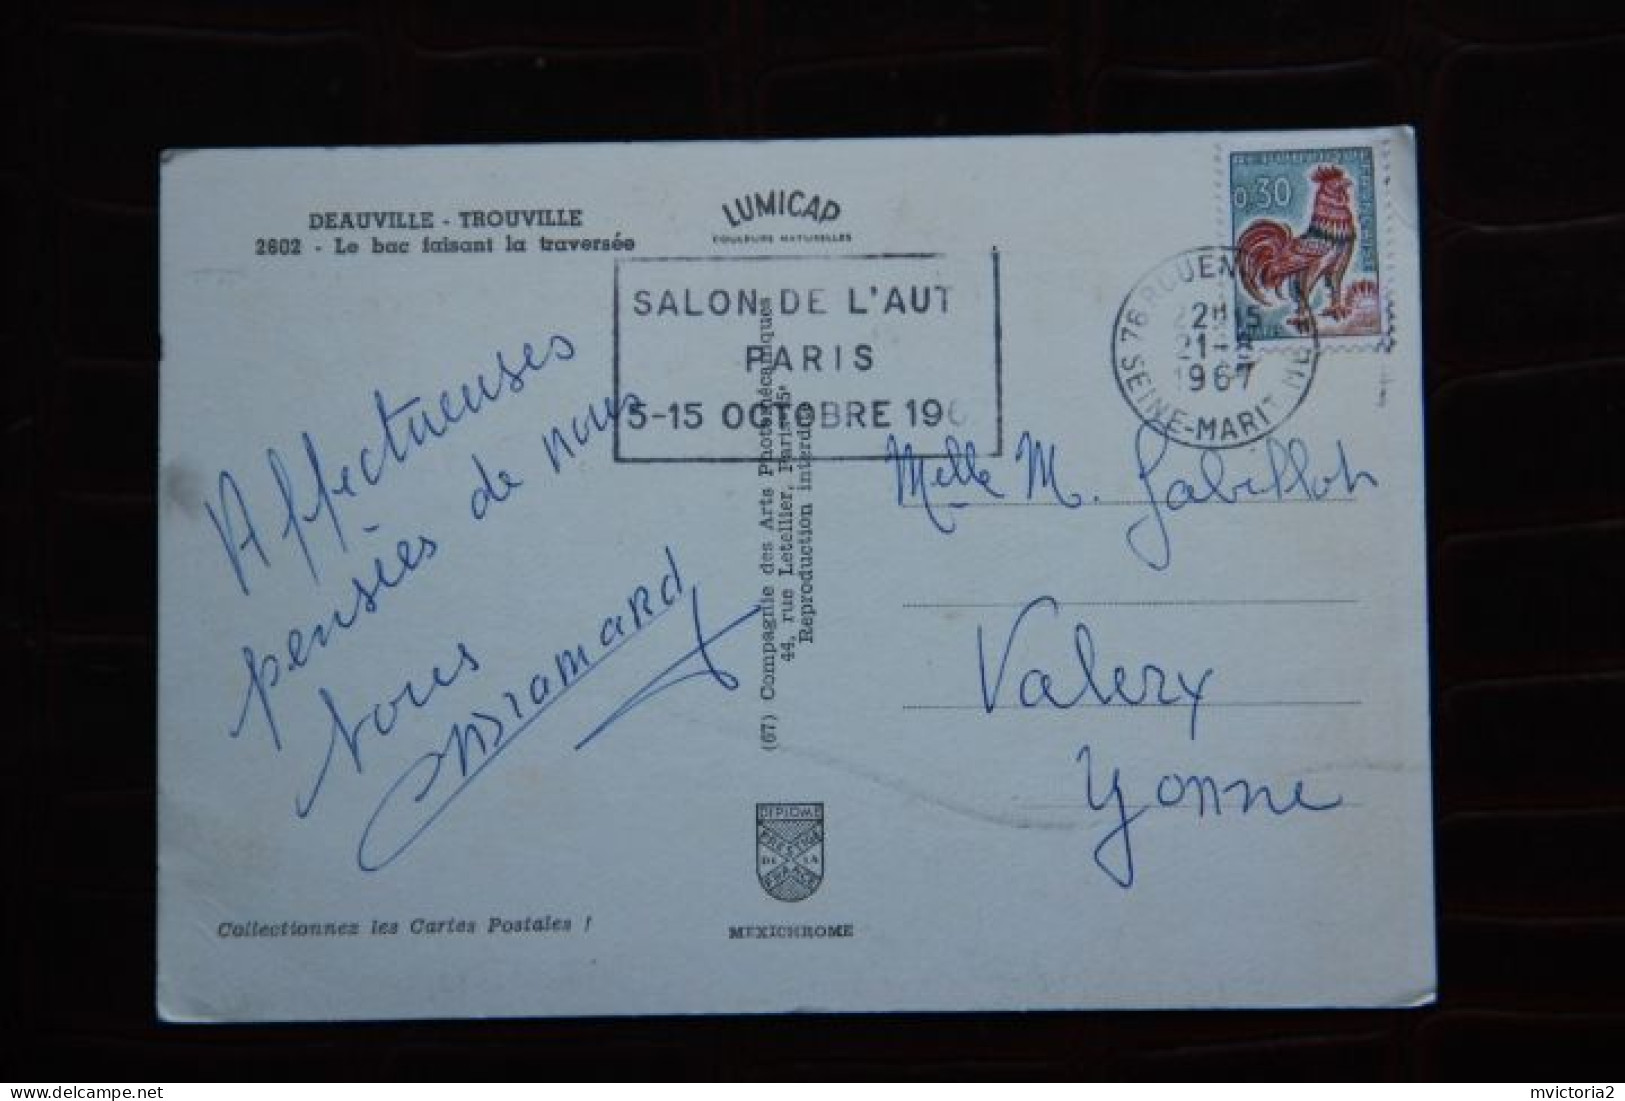 DEAUVILLE - TROUVILLE
2602 - Le bac faisant la traversée
LUMICAP
COULEURS NATURELLES
SALON DE L'AUT
PARIS
5-15 OCTOBRE 196
REPUBLIQUE FRANÇAISE
0,30
76 ROUEN
SEINE-MARITIME
21
1967
Affectueuses
pensées de nous
tous
Melle M. Gabillot
Valery
Yonne
(67) Compagnie des Arts Photomécaniques
44, rue Letellier, Paris-15e
Reproduction interdite
DIPLOME
PRESTIGE
DE LA
FRANCE
MEXICHROME
Collectionnez les Cartes Postales !
mvictoria2